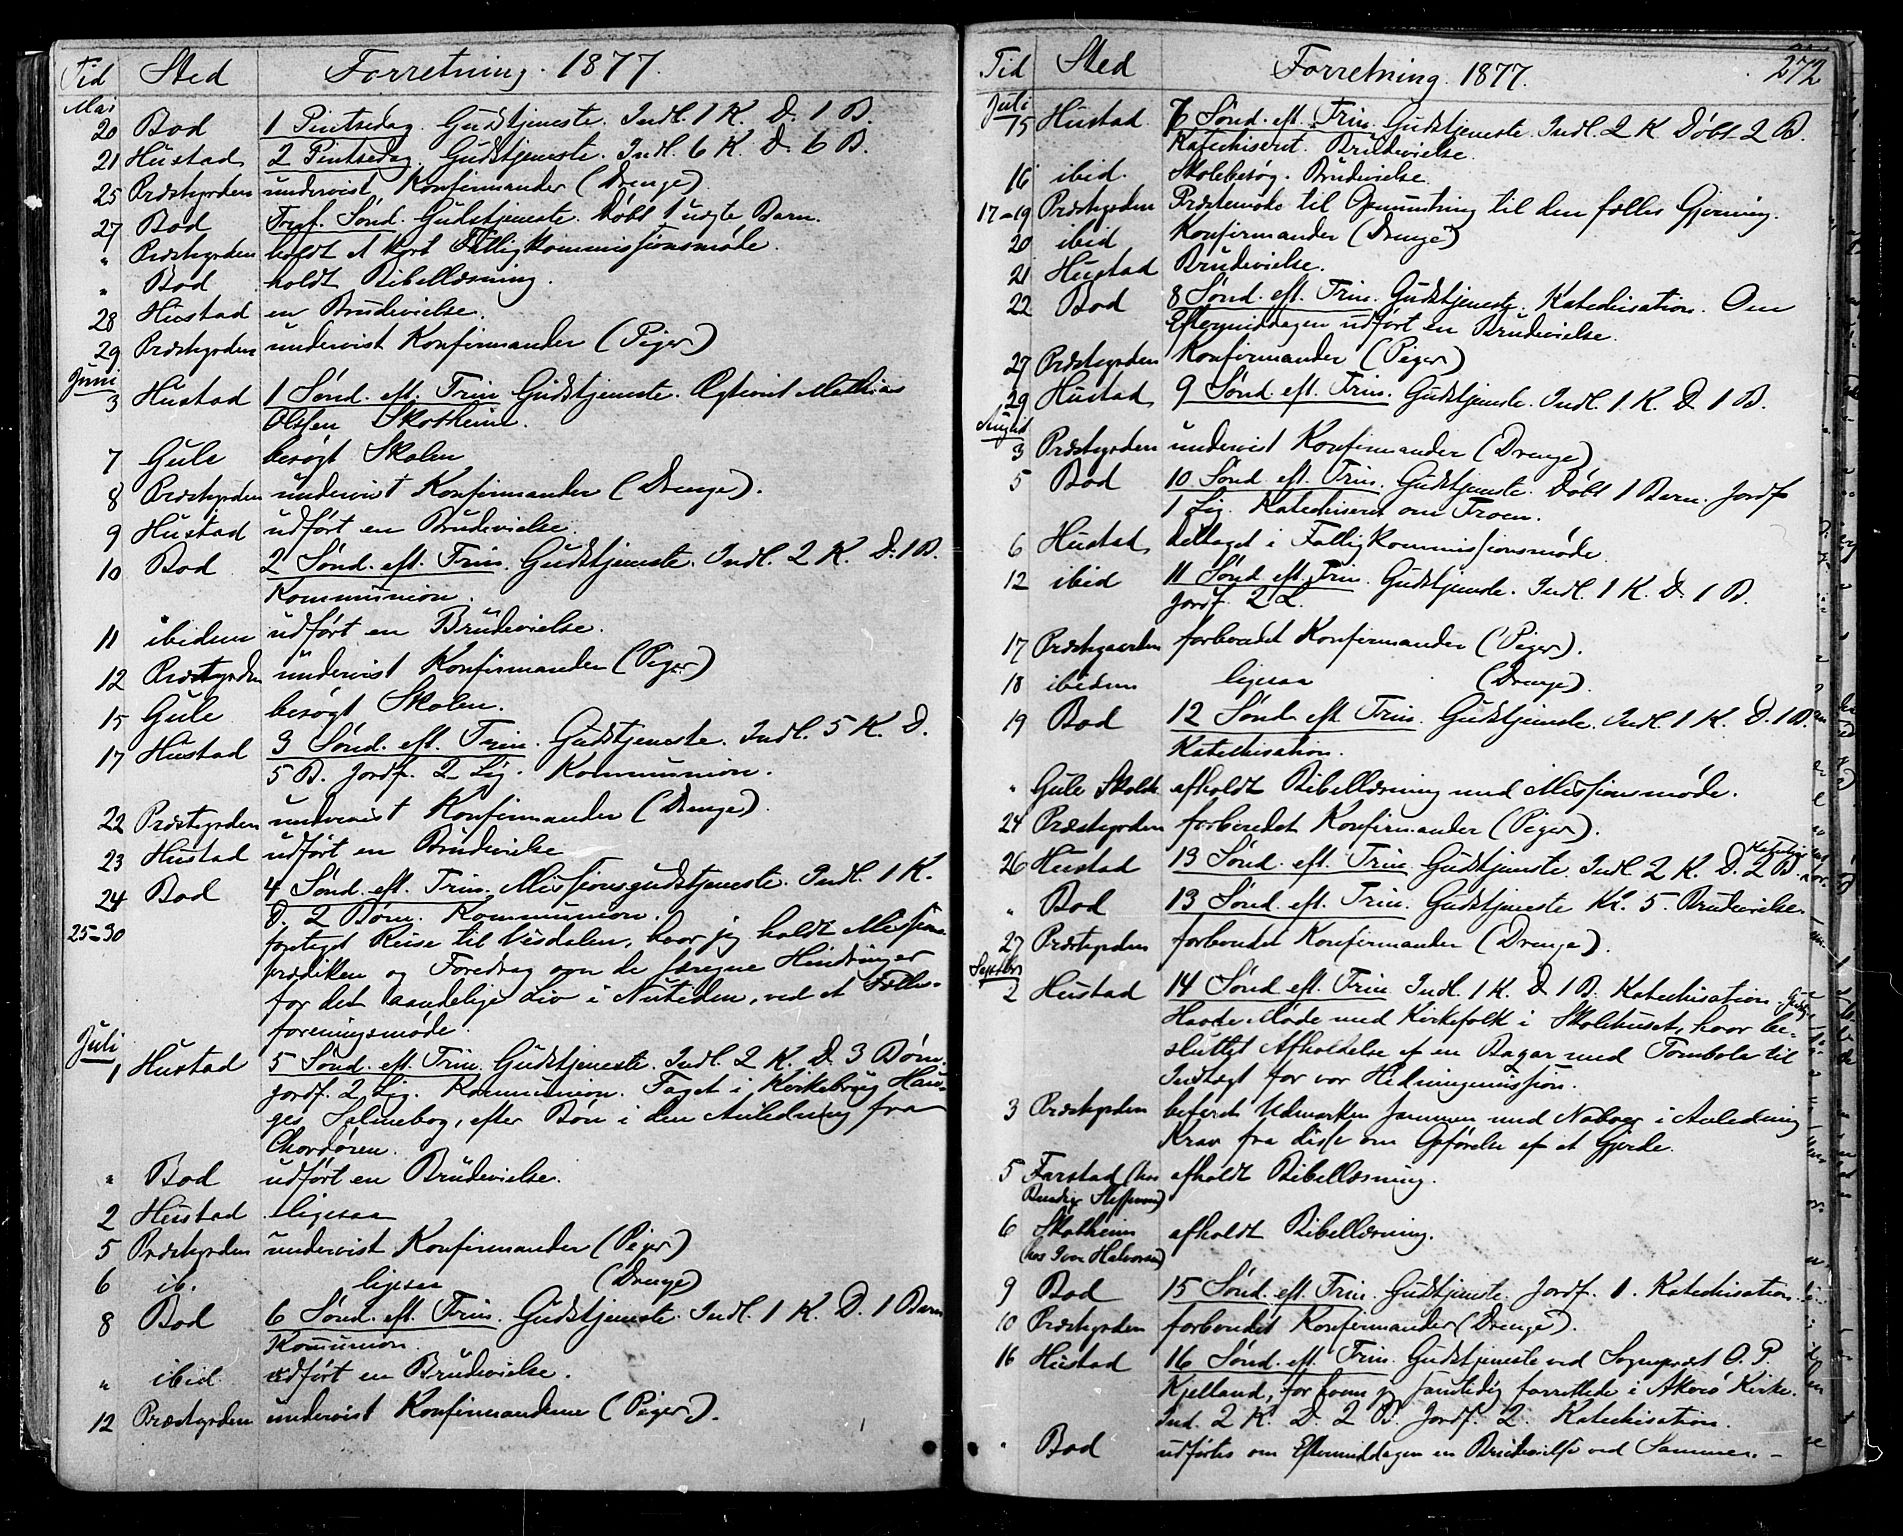 Tid Sted Forretning. 1877.
Mai
20 Bod 1 Pintsedag. Gudstjeneste. Indl. 1 K. D. 1 B.
21 Hustad 2 Pintsedag. Gudstjeneste. Indl. 6 K. D. 6 B.
25 Præstegrden undervist Konfirmander (Drenge).
27 Bod Tref. Sønd. Gudstjeneste. Døbt 1 uægte Barn.
" Præstegrden holdt et kort Fattigkommissionsmøde.
" Bod holdt Bibellæsning.
28 Hustad en Brudevielse.
29 Præstegrden undervist Konfirmander (Piger)
Juni
3 Hustad 1 Sønd. eft. Trin. Gudstjeneste. Ægtevit Mathias
Olsen Skotheim.
7 Gule besøgt Skolen
8 Præstegrden undervist Konfirmander (Drenge).
9 Hustad udført en Brudevielse.
10 Bod 2 Sønd. eft. Trin. Gudstjeneste. Indl. 2 K. D. 1 B.
Kommunion.
11 ibidem udført en Brudevielse.
12 Præstegrden undervist Konfirmander (Piger)
15 Gule besøgt Skolen.
17 Hustad 3 Sønd. eft. Trin. Gudstjeneste. Indl. 5 K. D.
5 B. Jordf. 2 Lig. Kommunion.
22 Præstegrden undervist Konfirmander (Drenge).
23 Hustad udført en Brudevielse
24 Bod 4 Sønd. eft. Trin. Missionsgudstjeneste. Indl. 1 K.
D. 2 Børn. Kommunion.
25-30 foretaget Reise til Visdalen, hvor jeg holdt Missions-
prædiken og Foredrag om de særegne Hindringer
for det aandelige Liv i Nutiden, ved et Fælles-
foreningsmøde.
Juli
1 Hustad 5 Sønd. eft. Trin. Gudstjeneste. Indl. 2 K. D. 3 Børn.
Jordf. 2 Lig. Kommunion. Taget i Kirkebrug Hau-
ges Salmebog, efter Bøn i den Anledning fra
Chordøren.
" Bod udført en Brudevielse.
2 Hustad ligesaa
5 Præstegrden undervist Konfirmander (Piger)
6 ib. ligesaa (Drenge)
8 Bod 6 Sønd. eft. Trin. Gudstjeneste. Indl. 1 K. D. 1 Barn
Kommunion.
" ibid udført en Brudevielse.
12 Præstegrden undervist Konfirmanderne (Piger).
Tid Sted Forretning. 1877. 272
Juli
15 Hustad 7 Sønd. eft. Trin. Gudstjeneste. Indl. 2 K Døbt 2 B.
Katechiseret. Brudevielse.
16 ibid. Skolebesøg. Brudevielse.
17-19 Præstegrden Præstemøde til Opmuntring til den fælles Gjerning.
20 ibid Konfirmander (Drenge)
21 Hustad Brudevielse.
22 Bod 8 Sønd. eft. Trin. Gudstjeneste. Katechisation. Om
Eftermiddagen udført en Brudevielse.
27 Præstegrden Konfirmander (Piger)
29 Hustad 9 Sønd. eft. Trin. Gudstjeneste. Indl. 1 K. D 1 B.
August
3 Præstegrden undervist Konfirmander (Drenge)
5 Bod 10 Sønd. eft. Trin. Gudstjeneste. Døbt 1 Barn. Jordf
1 Lig. Katechiseret om Troen.
6 Hustad deltaget i Fattigkommissionsmøde.
12 ibid 11 Sønd. eft. Trin. Gudstjeneste. Indl. 1 K. D. 1 B.
Jordf. 2 L.
17 Præstegaarden forberedet Konfirmander (Piger).
18 ibidem ligesaa (Drenge).
19 Bod 12 Sønd. eft. Trin. Gudstjeneste. Indl. 1 K. D. 1 B.
Katechisation.
" Gule Skoleh. afholdt Bibellæsning med Missionsmøde.
24 Præstegrden forberedet Konfirmander (Piger).
26 Hustad 13 Sønd. eft. Trin. Gudstjeneste. Indl 2 K. D. 2 B.
" Bod 13 Sønd. eft. Trin. Gudstjeneste Kl. 5. Brudevielse.
27 Præstegrden forberedet Konfirmander (Drenge).
Septbr
2 Hustad 14 Sønd. eft. Trin Indl. 1 K. D. 1 B. Katechisation.
Havde Møde med Kirkefolk i Skolehuset, hvor be-
sluttet Afholdelse af en Bazar med Tombola til
Indtægt for vor Hedningemission.
3 Præstegrden befaret Udmarken sammen med Naboer i Anledning
Krav fra disse om Opførelse af et Gjerde.
5 Farstad (hos afholdt Bibellæsning.
Steffensen)
6 Skotheim afholdt Bibellæsning.
(hos Iver Halvorsen)
9 Bod 15 Sønd. eft. Trin. Gudstjeneste. Jordf. 1. Katechisation.
10 Præstegrden forberedet Konfirmander (Drenge).
16 Hustad 16 Sønd. eft. Trin. Gudstjeneste ved Sogneprest O. P.
Kjelland, for hvem jeg samtidig forrettede i Akerø Kirke.
Ind. 2 K. D. 2 B. Jordf. 2. Katechisation.
" Bod udførtes om Eftermiddagen en Brudevielse ved Samme.